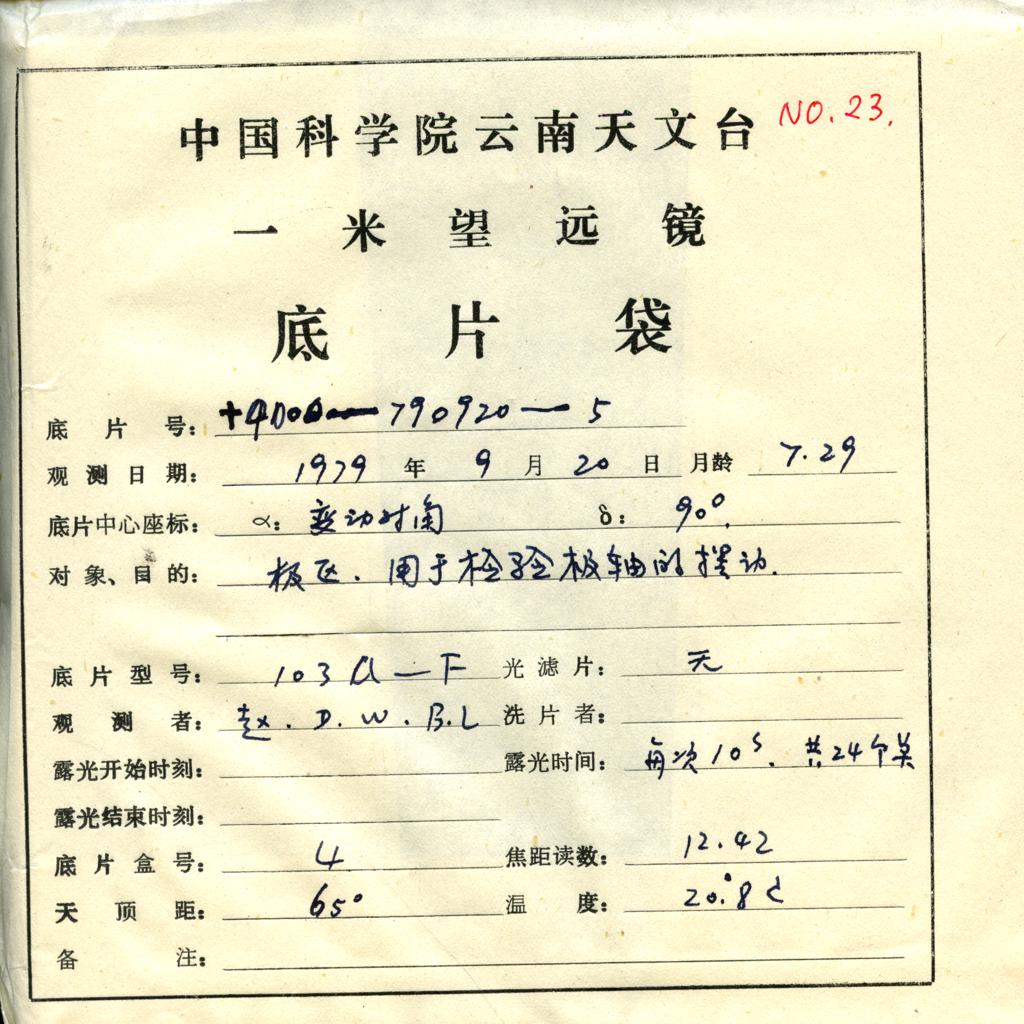 NO. 23.
中国科学院云南天文台
一米望远镜
底片袋
底片号: 790920 — 5
观测日期: 1979 年 9 月 20 日 月龄 7.29
底片中心座标: α: 变动时角 δ: 90°.
对象、目的: 极区. 用于检验极轴的摆动.
底片型号: 103a—F 光滤片: 无
观测者: 赵. D. W. B.L 洗片者:
露光开始时刻: 露光时间: 每次10s. 共24个
露光结束时刻:
底片盒号: 4 焦距读数: 12.42
天顶距: 65° 温度: 20.°8 C
备注: